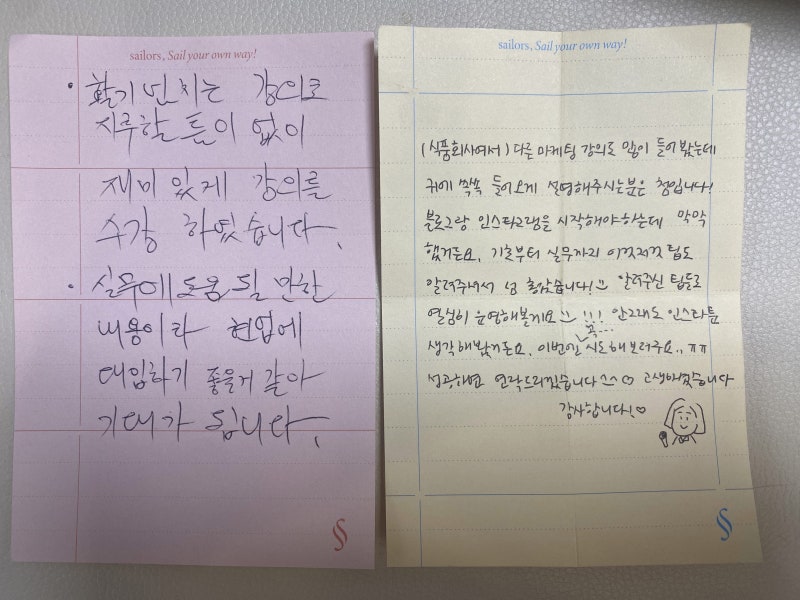 sailors, Sail your own way!
• 활기 넘치는 강의로
지루할 틈이 없이
재미있게 강의를
수강 하였습니다.
• 실무에 도움 될 만한
내용이라 현업에
대입하기 좋을거 같아
기대가 됩니다.
§
sailors, Sail your own way!
(식품회사에서) 다른 마케팅 강의도 많이 들어봤는데
귀에 쏙쏙 들어오게 설명해주시는분은 첨입니다!
블로그랑 인스타그램을 시작해야하는데 막막
했거든요. 기초부터 실무까지 이것저것 팁도
알려주셔서 넘 좋았습니다! 알려주신 팁들로
열심히 운영해볼게요 !!! 안그래도 인스타툰
생각해봤거든요. 이번엔 꼭... 시도해보려구요.. ㅠㅠ
성공하면 연락드리겠습니다 ^^ ♡ 고생하셨습니다
감사합니다! ♡
§